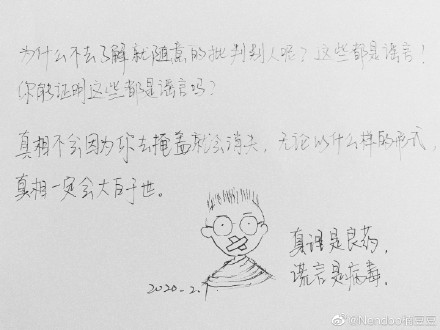 为什么不去了解就随意的批判别人呢？这些都是谣言！
你能证明这些都是谣言吗？
真相不会因为你去掩盖就会消失，无论以什么样的形式，
真相一定会大白于世。
真理是良药，
谎言是病毒。
2020.2.